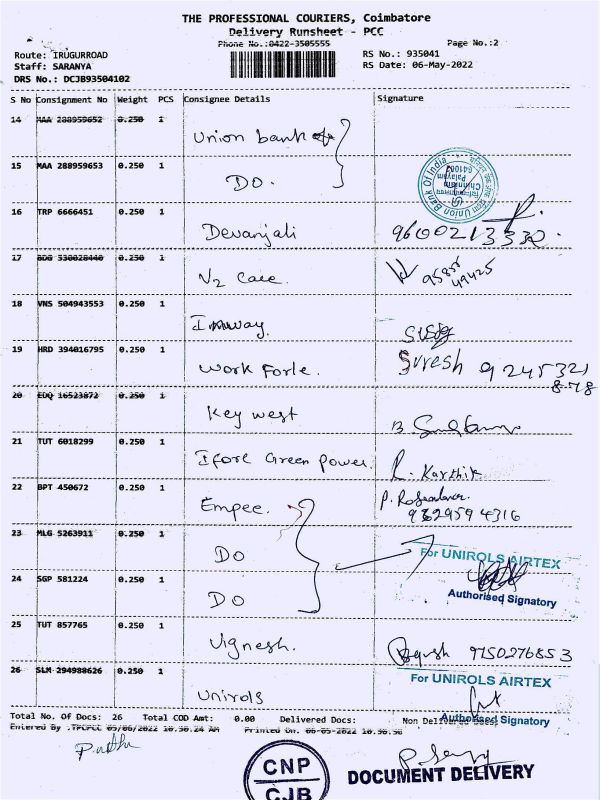 THE PROFESSIONAL COURIERS, Coimbatore
Delivery Runsheet - PCC
Phone No.:0422-3505555 Page No.:2
Route: IRUGURROAD RS No.: 935041
Staff: SARANYA RS Date: 06-May-2022
DRS No.: DCJB93504102
S No Consignment No Weight PCS Consignee Details Signature
14 MAA 288959652 0.250 1 Union bank of
15 MAA 288959653 0.250 1 DO.
Union Bank Of India
Chinnia
Palayam
16 TRP 6666451 0.250 1 Devanjali 9600213330
17 BDG 330028440 0.250 1 V2 Care. 95855 49425
18 VNS 504943553 0.250 1
19 HRD 394016795 0.250 1 Work Forle. Suresh 9245321 878
20 EDQ 16523872 0.250 1 Key west
21 TUT 6018299 0.250 1 Ifore Green Power. R. Karthik
22 BPT 450672 0.250 1 Empee.
23 MLG 5263911 0.250 1 DO For UNIROLS AIRTEX
24 SGP 581224 0.250 1 DO Authorised Signatory
25 TUT 857765 0.250 1 Vignesh. 9750276853
26 SLM 294988626 0.250 1 Unirols For UNIROLS AIRTEX
Authorised Signatory
Total No. Of Docs: 26 Total COD Amt: 0.00 Delivered Docs: Non Delivered Docs:
Entered By .TPCPCC 05/06/2022 10.30.24 AM Printed On. 06-05-2022 10.30.30
CNP
CJB
DOCUMENT DELIVERY